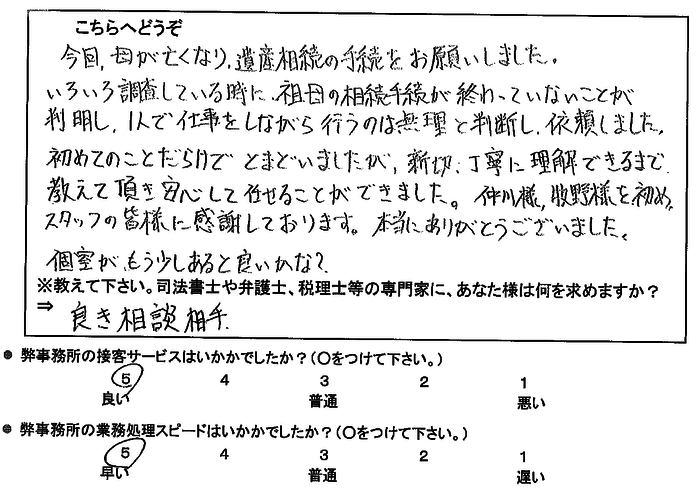 こちらへどうぞ
今回、母が亡くなり、遺産相続の手続をお願いしました。
いろいろ調査している時に、祖母の相続手続が終わっていないことが
判明し、1人で仕事をしながら行うのは無理と判断し、依頼しました。
初めてのことだらけで とまどいましたが、親切、丁寧に理解できるまで
教えて頂き安心して任せることができました。仲川様、牧野様を初め
スタッフの皆様に感謝しております。本当にありがとうございました。
個室が、もう少しあると良いかな?
※教えて下さい。司法書士や弁護士、税理士等の専門家に、あなた様は何を求めますか?
⇒ 良き相談相手
● 弊事務所の接客サービスはいかかでしたか?(○をつけて下さい。)
5 4 3 2 1
良い 普通 悪い
● 弊事務所の業務処理スピードはいかかでしたか?(○をつけて下さい。)
5 4 3 2 1
早い 普通 遅い